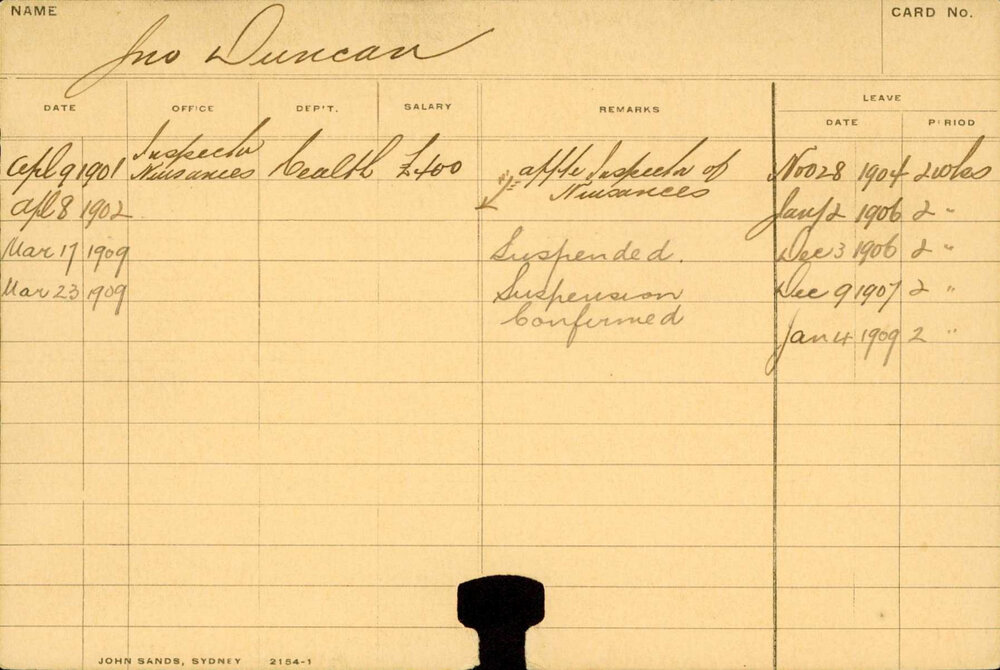 NAME
CARD No.
Jno Duncan
DATE OFFICE DEP'T. SALARY REMARKS LEAVE
DATE PERIOD
Apl 9 1901 Inspector Nuisances Health £400 appte Inspector of Nuisances Nov 28 1904 2 wks
Apl 8 1902 Jany 2 1906 2 "
Mar 17 1909 Suspended. Dec 3 1906 2 "
Mar 23 1909 Suspension Dec 9 1907 2 "
Confirmed
Jan 4 1909 2 "
JOHN SANDS, SYDNEY 2154-1